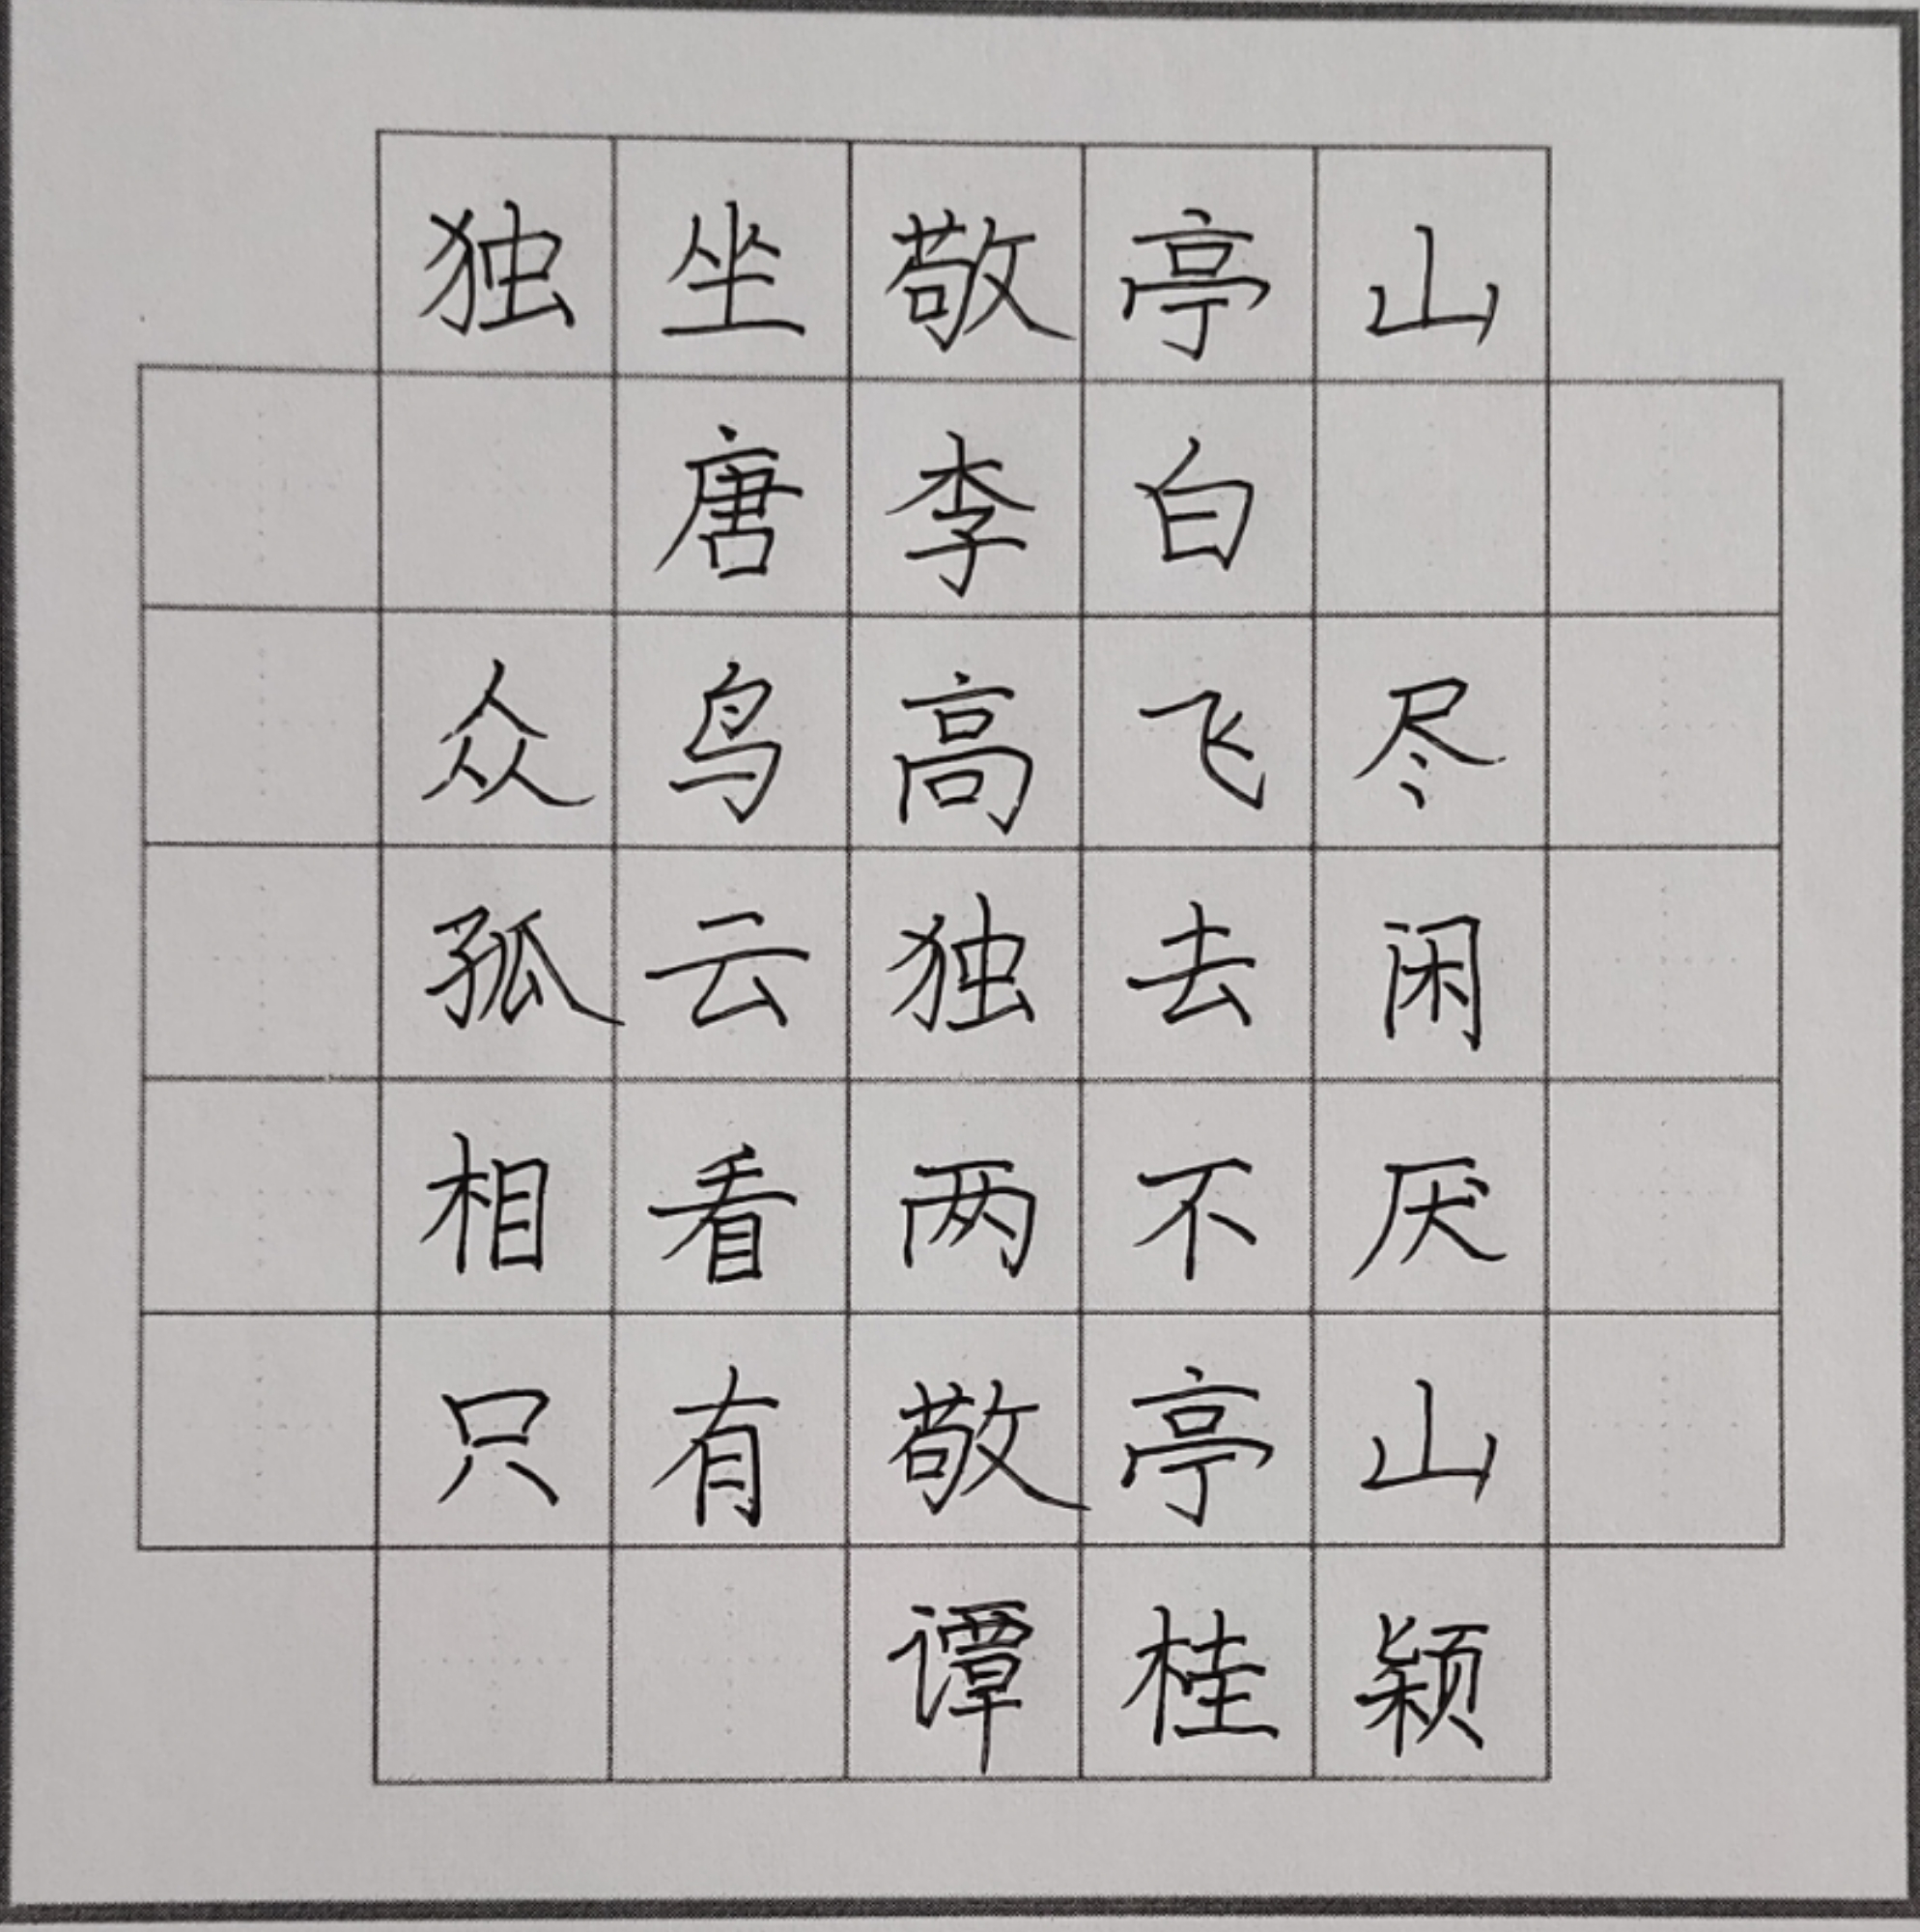 独坐敬亭山
唐李白
众鸟高飞尽
孤云独去闲
相看两不厌
只有敬亭山
谭桂颖